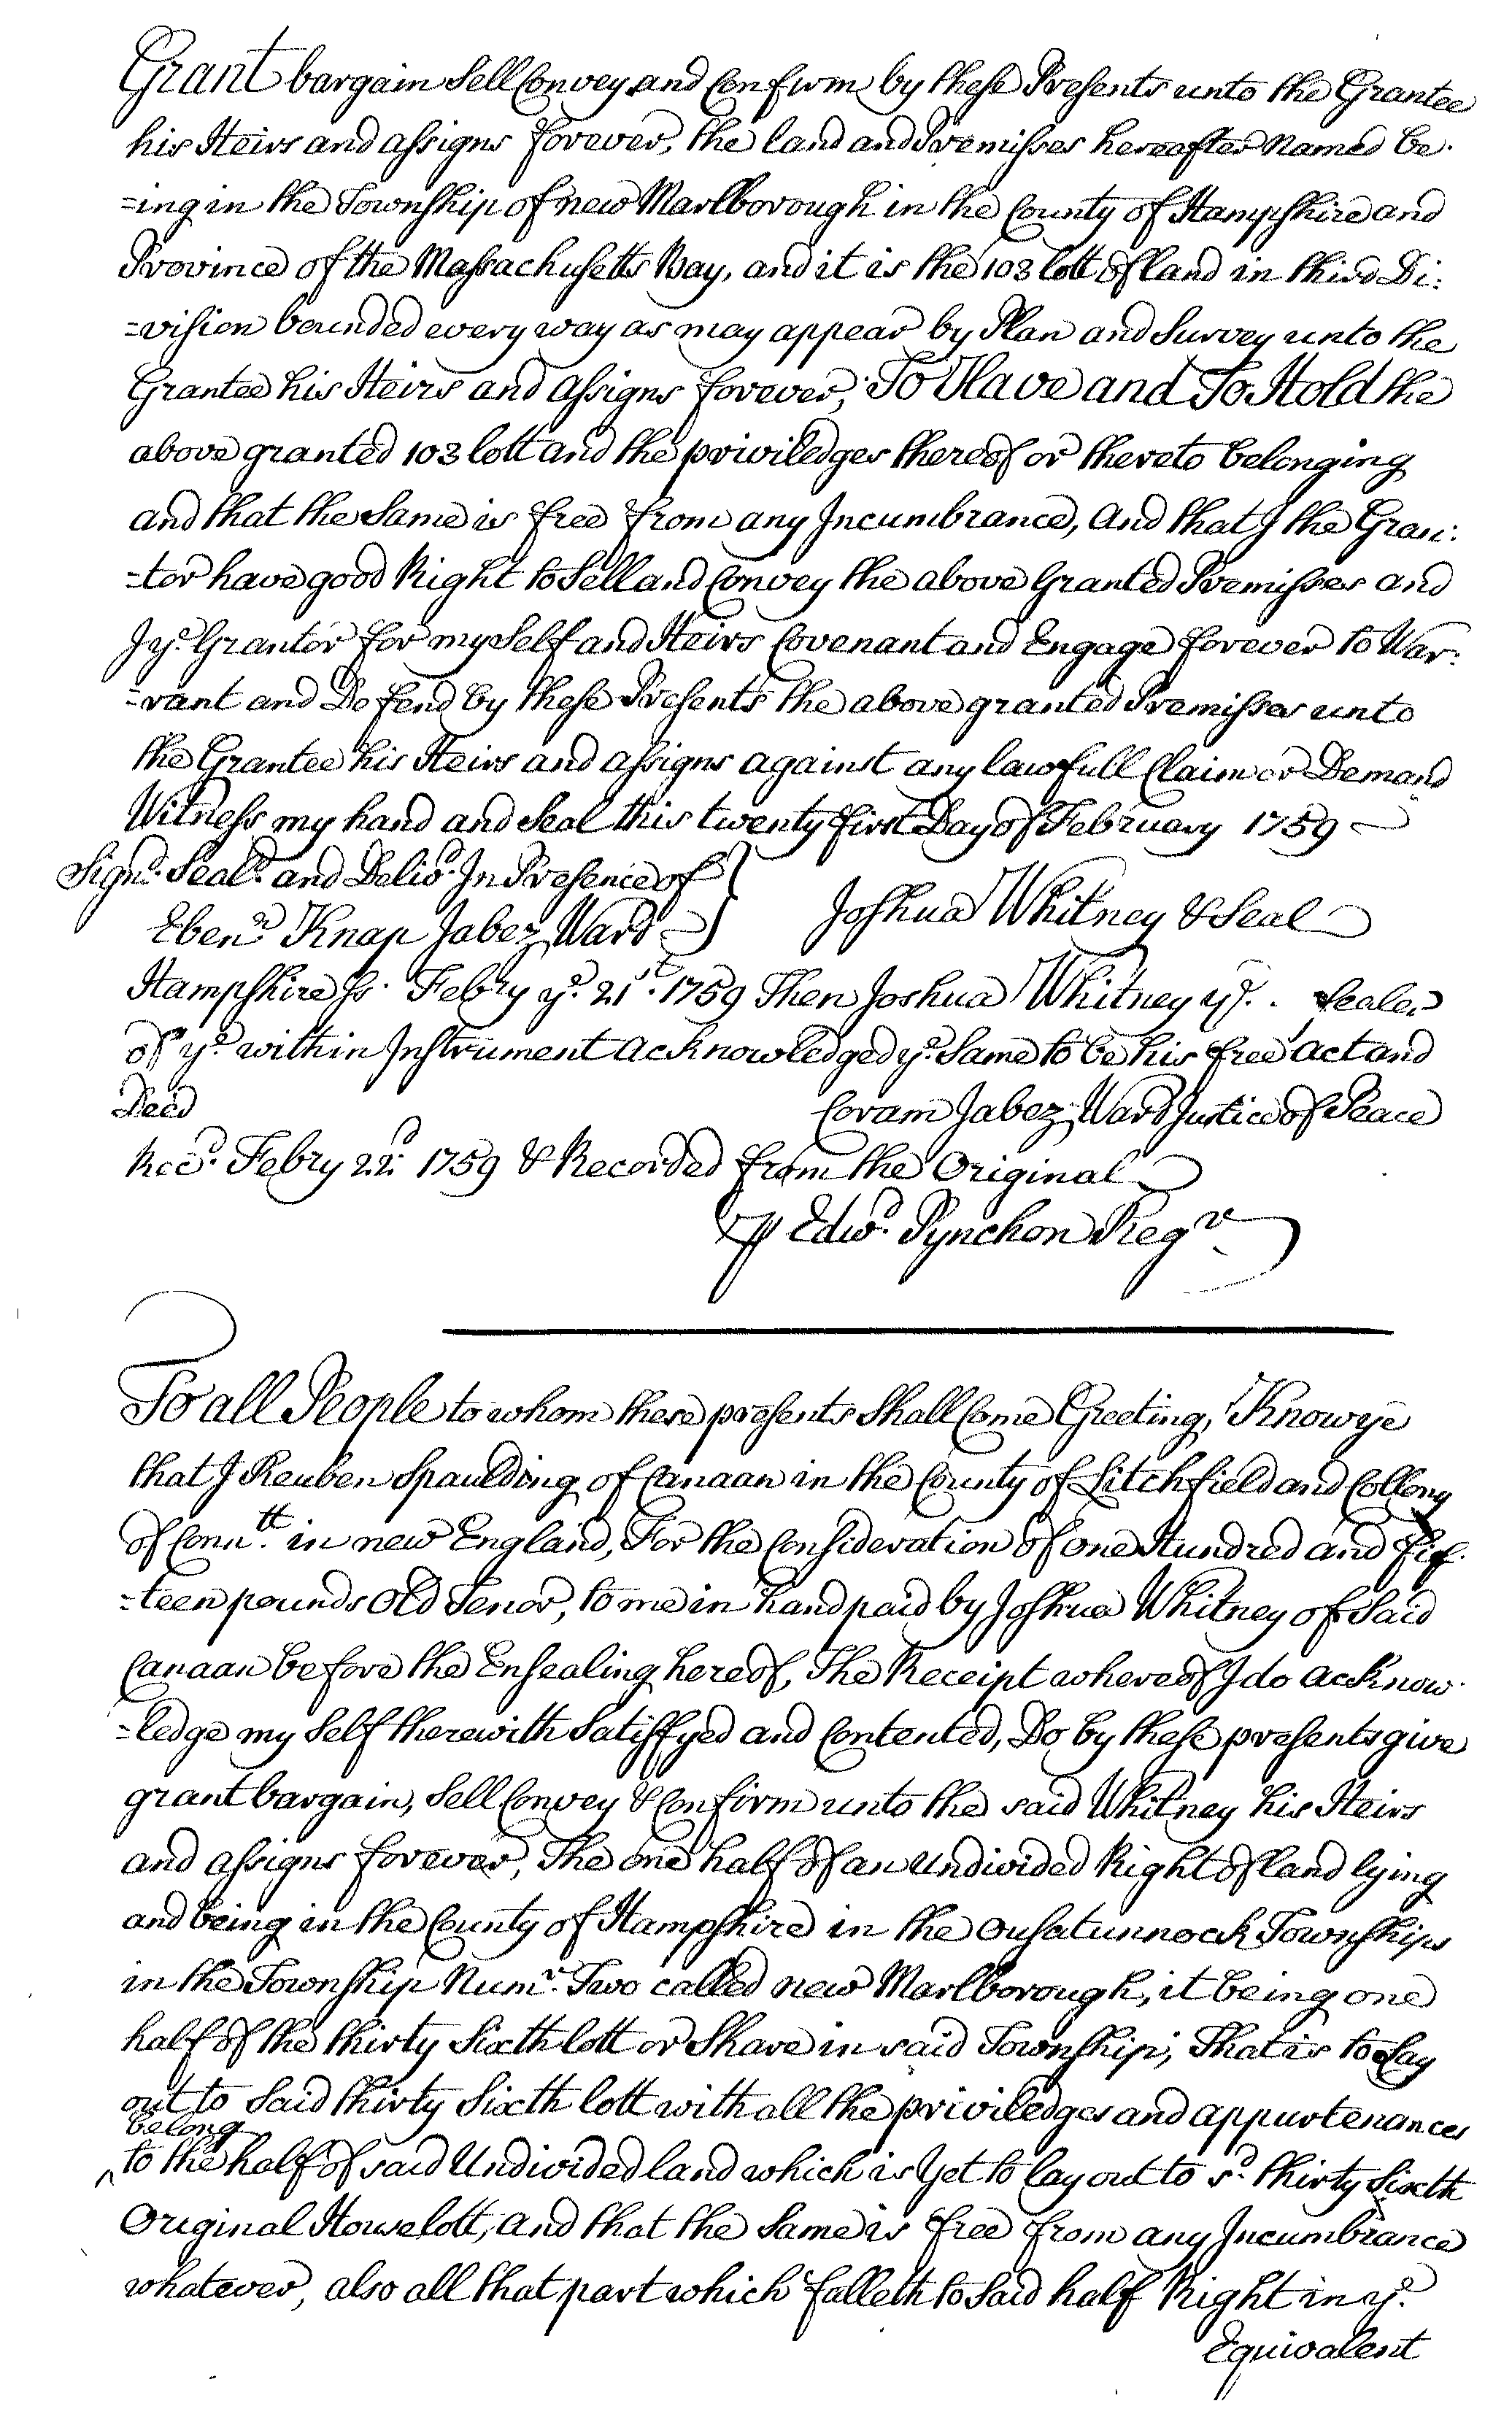 Grant bargain Sell Convey and Confirm by these Presents unto the Grantee
his Heirs and assigns forever, the land and Premisses hereafter Named be-
=ing in the Township of new Marlborough in the County of Hampshire and
Province of the Massachusetts Bay, and it is the 103 lott of land in third Di:
=vision bounded every way as may appear by Plan and Survey unto the
Grantee his Heirs and assigns forever, To Have and To Hold the
above granted 103 lott and the priviledges thereof or thereto belonging
and that the Same is free from any Incumbrance, And that I the Gran:
=tor have good Right to Sell and Convey the above Granted Premisses and
I ye. Grantor for my Self and Heirs Covenant and Engage forever to War:
=rant and Defend by these Presents the above granted Premisses unto
the Grantee his Heirs and assigns against any lawfull Claim or Demand
Witness my hand and Seal this twenty first Day of February 1759
Signd. Seald. and Delivd. In Presence of
Ebenr. Knap Jabez Ward
Joshua Whitney & Seal
Hampshire ss. Febry ye. 21st. 1759 Then Joshua Whitney ye. Sealer
of ye. within Instrument acknowledged ye. Same to be his free act and
Deed Coram Jabez Ward Justice of Peace
Recd. Febry 22d. 1759 & Recorded from the Original
⅌ Edwd. Pynchon Regr.
To all People to whom these presents Shall Come Greeting, Know ye
that I Reuben Spaulding of Canaan in the County of Litchfield and Collony
of Conntt. in new England, For the Consideration of one Hundred and fif-
=teen pounds Old Tenor, to me in hand paid by Joshua Whitney of Said
Canaan before the Ensealing hereof, The Receipt whereof I do acknow-
=ledge my Self therewith Satisfyed and Contented, Do by these presents give
grant bargain, Sell Convey & Confirm unto the said Whitney his Heirs
and assigns forever, The one half of an Undivided Right of land lying
and being in the County of Hampshire in the Ousatunnock Townships
in the Township Numr. Two called new Marlborough, it being one
half of the thirty Sixth lott or Share in said Township; That is to Lay
out to Said thirty Sixth lott with all the priviledges and appurtenances
belong
^to the half of said Undivided land which is Yet to lay out to sd. thirty Sixth
Original Houselott, and that the Same is free from any Incumbrance
whatever, also all that part which falleth to Said half Right in ye.
Equivalent